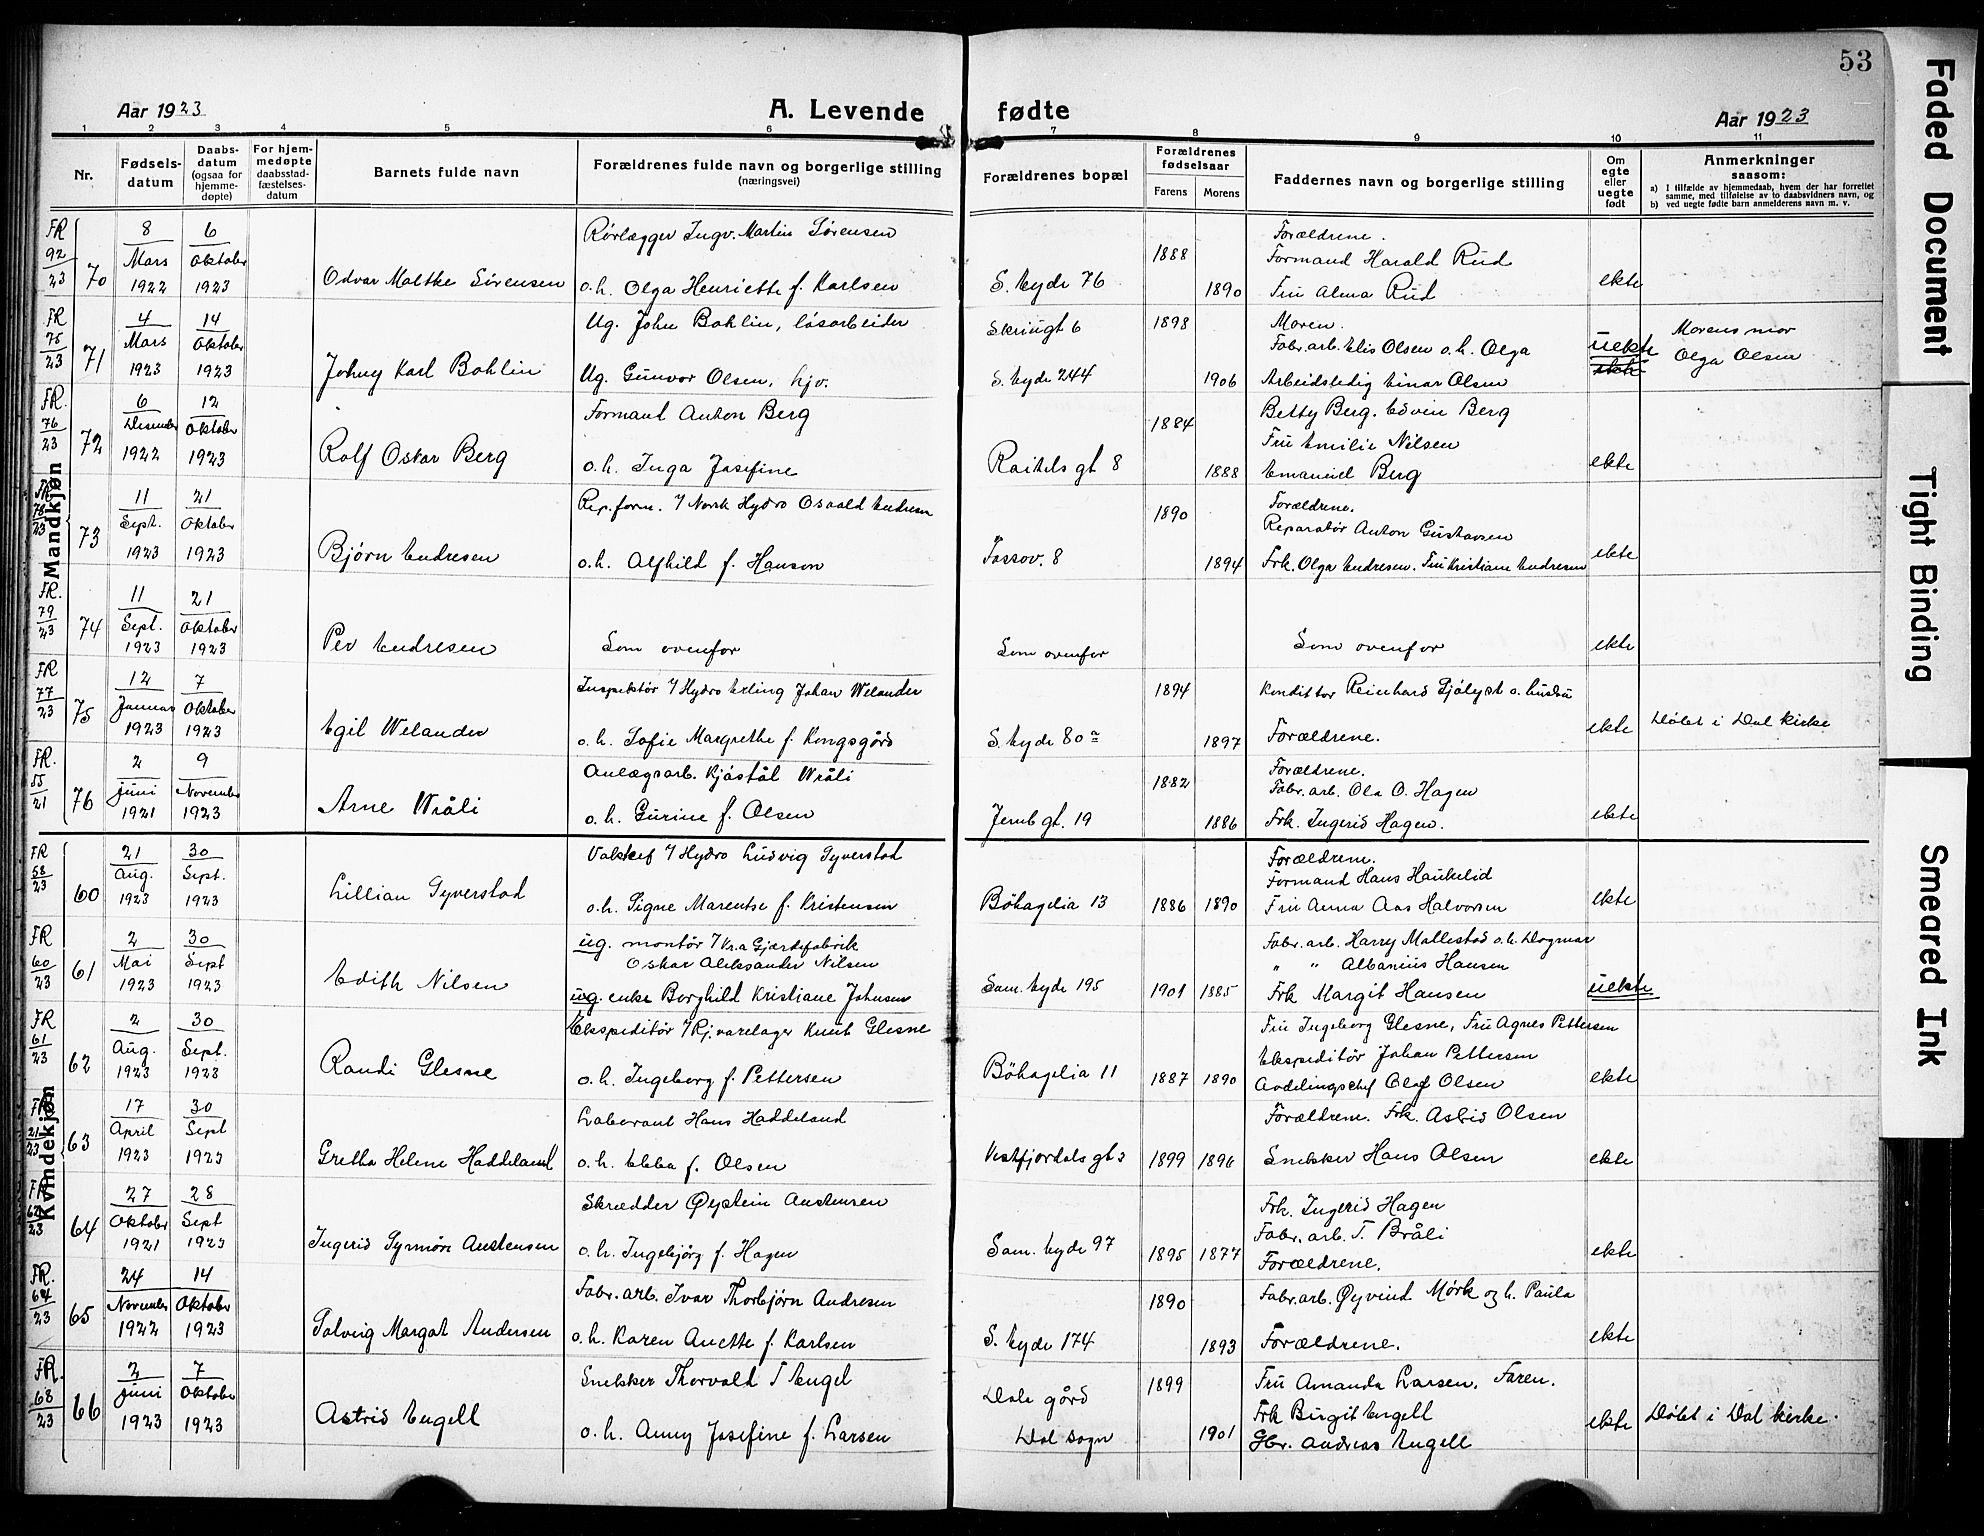 53
Aar 1923
A. Levende
fødte
Aar 1923
1 2 3 4 5 6 7 8 9 10 11
Nr.
Fødsels-
datum
Daabs-
datum
(ogsaa for
hjemme-
døpte)
For hjem-
medøpte
daabsstad-
fæstelses-
datum
Barnets fulde navn
Forældrenes fulde navn og borgerlige stilling
(næringsvei)
Forældrenes bopæl
Forældrenes
fødselsaar
Farens
Morens
Faddernes navn og borgerlige stilling
Om
egte
eller
uegte
født
Anmerkninger
saasom:
a) I tilfælde av hjemmedaab, hvem der har forrettet
samme, med tilføielse av to daabsvidners navn, og
b) ved uegte fødte barn anmelderens navn m. v.
Mandkjøn
FR 92/23
70
8 Mars 1922
6 Oktober 1923
Odvar Moltke Sørensen
Rørlægger Ingv. Martin Sørensen
o.h. Olga Henriette f. Karlsen
S. Eyde 76
1888
1890
Forældrene.
Formand Harald Rud
Fru Alma Rud
ekte
FR 75/23
71
4 Mars 1923
14 Oktober 1923
Johny Karl Bohlin
Ug. John Bohlin, løsarbeider
Ug. Gunvor Olsen, hjv.
Skriugt 6
S. Eyde 244
1898
1906
Moren.
Fabr. arb. Elis Olsen o.h. Olga
Arbeidsledig Einar Olsen
uekte
ekte
Morens mor
Olga Olsen
FR. 76/23
72
6 Desember 1922
12 Oktober 1923
Rolf Oskar Berg
Formand Anton Berg
o.h. Inga Josefine
Raitels gt 8
1884
1888
Betty Berg. Edvin Berg
Fru Emilie Nilsen
Emanuel Berg
ekte
FR 78/23
73
11 Sept. 1923
21 Oktober 1923
Bjørn Endresen
Rep. form. v/ Norsk Hydro Osvald Endresen
o.h. Alfhild f. Hanson
Fossov. 8
1890
1894
Forældrene.
Reparatør Anton Gustavsen
Frk. Olga Endresen. Fru Kristiane Endresen
ekte
FR. 79/23
74
11 Sept. 1923
21 Oktober 1923
Per Endresen
Som ovenfor
Som ovenfor
Som ovenfor
ekte
FR 77/23
75
12 Januar 1923
7 Oktober 1923
Egil Welander
Inspektør v/ Hydro Erling Johan Welander
o.h. Sofie Margrethe f. Kongsgård
S. Eyde 80 a
1894
1897
Konditor Reinhard Sjølyst o. hustru
Forældrene.
ekte
Døbt i Dal kirke
FR. 55/21
76
2 juni 1921
9 November 1923
Arne Wråli
Anlægsarb. Kjåstål Wråli
o.h. Gurine f. Olsen
Jernb gt. 19
1882
1886
Forældrene.
Fabr. arb. Ola O. Hagen
Frk. Ingerid Hagen.
ekte
Kvindekjøn
FR 58/23
60
21 Aug. 1923
30 Sept. 1923
Lillian Syverstad
Vaktchef v/ Hydro Ludvig Syverstad
o.h. Signe Marentse f. Kristensen
Böhagelia 13
1886 1890
Forældrene.
Formand Hans Haukelid
Fru Anna Aas Halvorsen
ekte
FR 60/23
61
2 Mai 1923
30 Sept 1923
Edith Nilsen
ug. montør v/ Kr.a Gjærdefabrik
Oskar Aleksander Nilsen
ug. enke Borghild Kristiane Johnsen
Sam. Eyde 195
1901 1885
Fabr. arb. Harry Mollestad o.h. Dagmar
" " Albanius Hansen
Frk Margit Hansen
uekte
FR 61/23
62
2 Aug. 1923
30 Sept. 1923
Randi Glesne
Ekspeditør v/ Rj. varelager Knut Glesne
o.h. Ingeborg f. Pettersen
Böhagelia 11
1887 1890
Fru Ingeborg Glesne, Fru Agnes Pettersen
Ekspeditör Johan Pettersen
Avdelingschef Olaf Olsen
ekte
FR. 21/23
63
17 April 1923
30 Sept 1923
Gretha Helene Haddeland
Laborant Hans Haddeland
o.h. Ebba f. Olsen
Vestfjordals gt 2
1899 1896
Forældrene. Frk. Astrid Olsen
Snekker Hans Olsen
ekte
FR 62/23
64
27 Oktober 1921
28 Sept 1923
Ingerid Synnöve Austensen
Skrædder Øystein Austensen
o.h. Ingebjørg f. Hagen
Sam. Eyde 97
1895 1877
Frk. Ingerid Hagen
Fabr. arb. T. Bråli
Forældrene.
ekte
FR. 64/23
65
24 November 1922
14 Oktober 1923
Solveig Margot Andersen
Fabr. arb. Ivar Thorbjørn Andresen
o.h. Karen Anette f. Karlsen
S. Eyde 174
1890
1893
Fabr. arb. Øyvind Mørk og h. Paula
Forældrene.
ekte
FR. 68/23
66
2 juni 1923
7 Oktober 1923
Astrid Engell
Snekker Thorvald T Engel
o.h. Anny Josefine f. Larsen
Dale gård
Dal sogn
1899
1901
Fru Amanda Larsen. Faren.
Frk Birgit Engell
Gbr. Andreas Engell
ekte
Døbt i Dal kirke.
Faded Document
Tight Binding
Smeared Ink